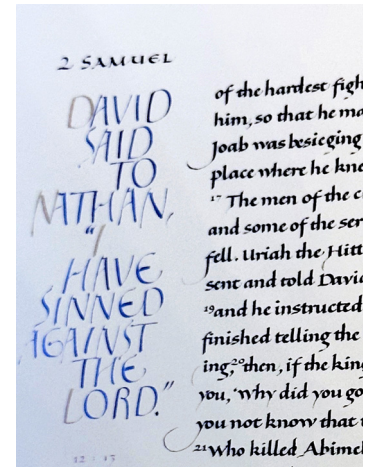 2 SAMUEL
DAVID
SAID
TO
NATHAN,
“I
HAVE
SINNED
AGAINST
THE
LORD.”
12 : 13
of the hardest figh
him, so that he ma
Joab was besieging
place where he kne
17 The men of the c
and some of the ser
fell. Uriah the Hitt
sent and told David
19 and he instructed
finished telling the
ing, 20 then, if the king
you, ‘Why did you go
you not know that
21 Who killed Abimel